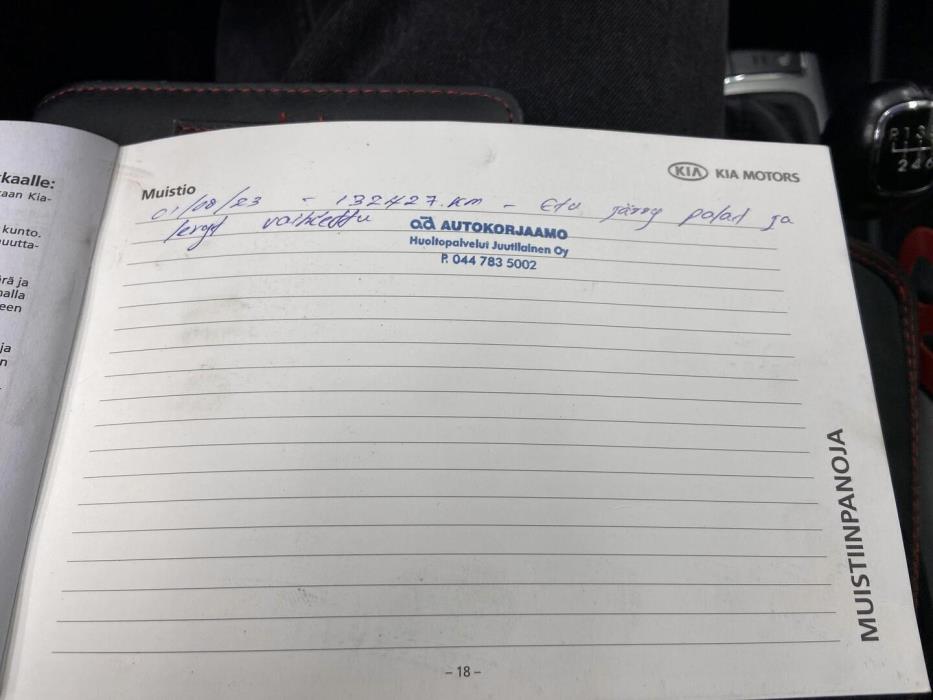 kaalle:
taan Kia-
kunto.
uutta-
rä ja
nalla
een
ja
n
KIA KIA MOTORS
Muistio
01/08/23 - 132427.km - Etu jarry palat ja
levyt vaihdettu
ad AUTOKORJAAMO
Huoltopalvelut Juutilainen Oy
P. 044 783 5002
MUISTIINPANOJA
- 18 -
R 1 3
2 4 6